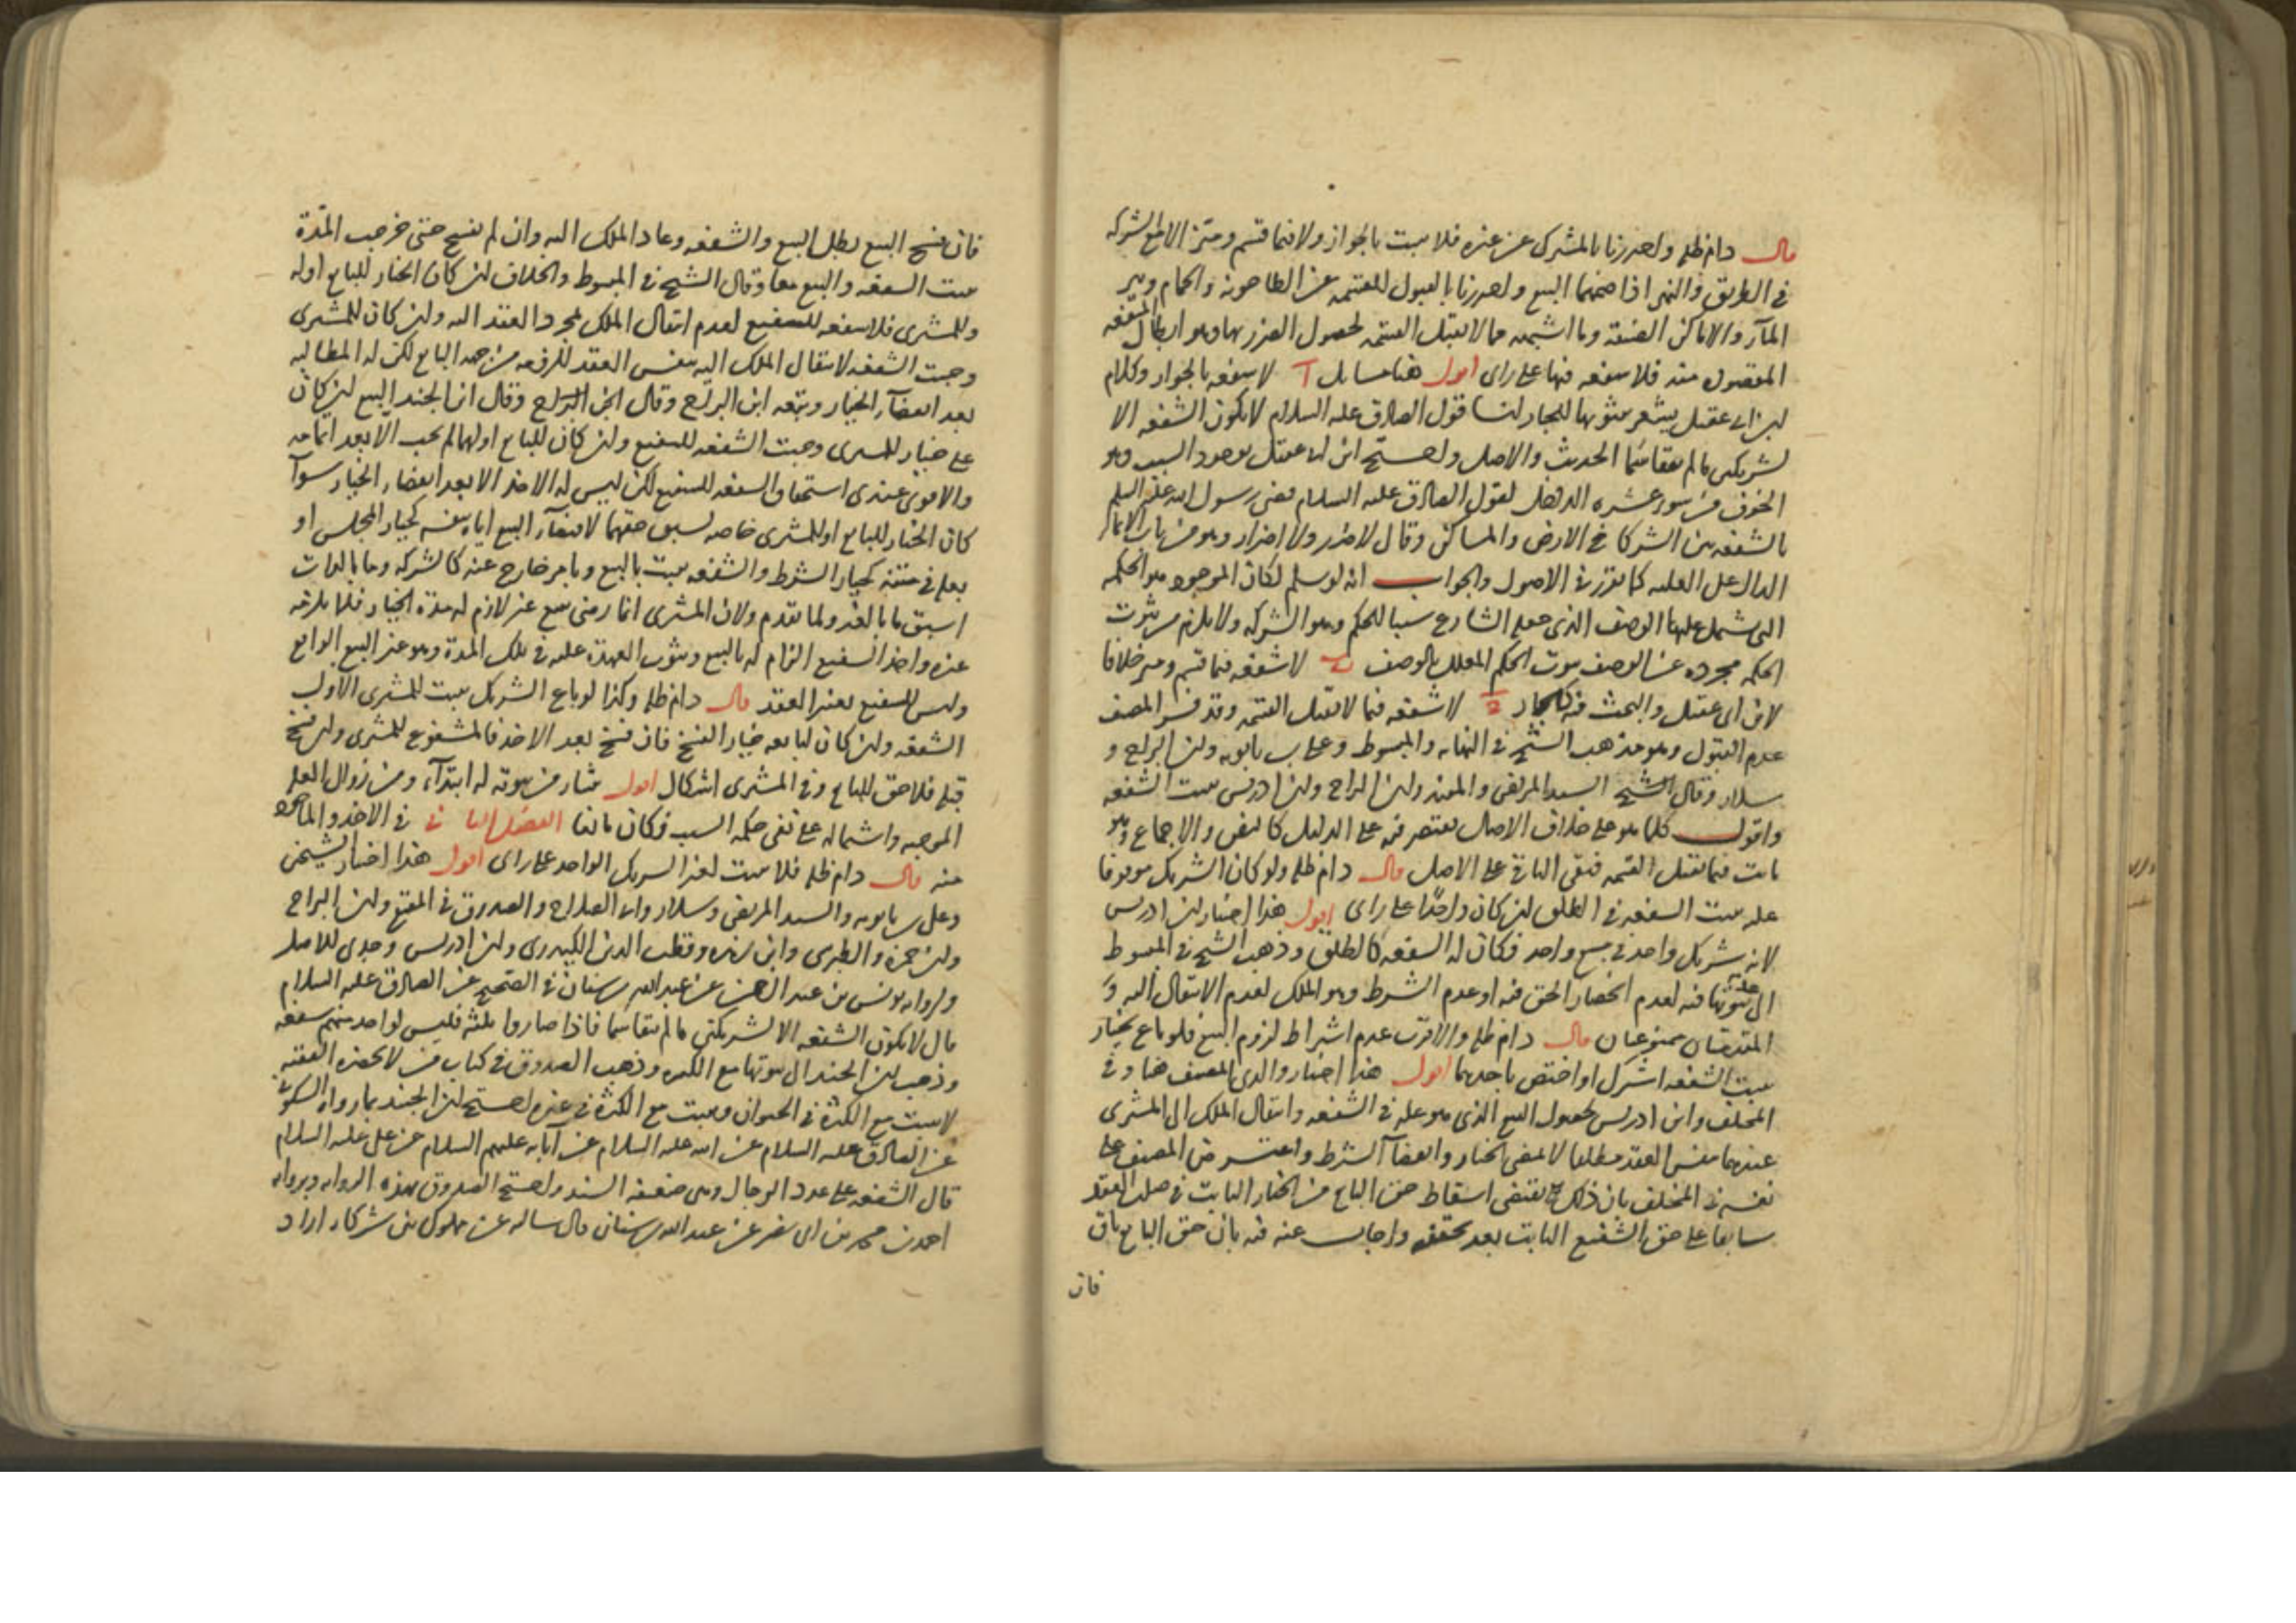 قال دام ظله واحترزنا بالمشترك عن غيره فلا يثبت بالجوار ولا فيما قسم وميز الا مع الشركة
في الطريق والنهر اذا ضمهما البيع واحترزنا بالقبول للقسمة عن الطاحونة والحمام وبير
المآء والاماكن الضيقة وما اشبهه مما لا يقبل القسمة لحصول الضرر بها وهو ابطال المنفعة
المقصودة منه فلا شفعة فيها على رأى اقول هنا مسايل آ لا شفعة بالجوار وكلام
ابن ابى عقيل يشعر بثبوتها للجار لنا قول الصادق عليه السلام لا يكون الشفعة الا
لشريكين ما لم يتقاسما الحديث والاصل واحتج ابن ابى عقيل بوجود السبب وهو
الخوف من سوء عشرة الدخيل لقول الصادق عليه السلام قضى رسول الله عليه السلم
بالشفعة بين الشركا في الارض والمساكن وقال لا ضرر ولا اضرار وهو من باب الايماء
الدال على العلية كما تقرر في الاصول والجواب انه لو سلم لكان الموجود هو الحكمة
التى يشتمل عليها الوصف الذى جعله الشارع سببا للحكم وهو الشركة ولا يلزم من ثبوت
الحكمة مجرده عن الوصف ثبوت الحكم المعلل بالوصف ب لا شفعة فيما قسم وميز خلافا
لابن ابى عقيل والبحث فيه كالجار ج لا شفعة فيما لا يقبل القسمة وقد فسر المصنف
عدم القبول وهو مذهب الشيخ في النهاية والمبسوط وعلى بن بابويه وابن البراج و
سلار وقال الشيخ السيد المرتضى والمفيد وابن البراج وابن ادريس يثبت الشفعة
واقول كلما هو على خلاف الاصل يقتصر فيه على الدليل كالنص والاجماع وهو
ثابت فيما يقبل القسمة فيبقى الباقي على الاصل قال دام ظله ولو كان الشريك موقوفا
عليه يثبت الشفعة في الطلق ان كان واحدا على رأى اقول هذا اختيار ابن ادريس
لانه شريك واحد في مبيع واحد فكان له الشفعة كالطلق وذهب الشيخ في المبسوط
الى عدم ثبوتها فيه لعدم انحصار الحق فيه او عدم الشرط وهو الملك لعدم الانتقال اليه و
المقدمتان ممنوعتان قال دام ظله والاقرب عدم اشتراط لزوم البيع فلو باع بخيار
يثبت الشفعة اشترك او اختص باحدهما اقول هذا اختيار والدى المصنف هنا وفي
المختلف وابن ادريس لحصول البيع الذى هو علة في الشفعة وانتقال الملك الى المشترى
عندهما بنفس العقد مطلقا لا بمضى الخيار وانقضآء الشرط واعترض المصنف على
نفسه في المختلف بان ذلك يقتضى اسقاط حق البايع من الخيار الثابت في صلب العقد
سابقا على حق الشفيع الثابت بعد تحققه واجاب عنه فيه بان حق البايع باق
فان
فان فسخ البيع بطل البيع والشفعة وعاد الملك اليه وان لم يفسخ حتى خرجت المدة
يثبت الشفعة والبيع معا وقال الشيخ في المبسوط والخلاف ان كان الخيار للبايع او له
وللمشترى فلا شفعة للشفيع لعدم انتقال الملك بمجرد العقد اليه وان كان للمشترى
وجبت الشفعة لانتقال الملك اليه بنفس العقد للرفعه من جهة البايع لكن له المطالبة
بعد انقضآء الخيار وتبعه ابن البراج وقال ابن البراج وقال ابن الجنيد البيع ان كان
على خيار للمشترى وجبت الشفعة للشفيع وان كان للبايع او لهما لم يجب الا بعد اتمامه
والاقوى عندى استحقاق الشفعة للشفيع لكن ليس له الاخذ الا بعد انقضاء الخيار سوآء
كان الخيار للبايع او للمشترى خاصة لسبق حقهما لاقتضآء البيع اياه بنفسه كخيار المجلس او
بعله في متنه كخيار الشرط والشفعة يثبت بالبيع وبامر خارج عنه كالشركة وما بالذات
اسبق ما بالغير ولما تقدم ولان المشترى انما رضى ببيع غير لازم له مدة الخيار فلا يلزمه
غيره واخذ الشفيع الزام له بالبيع وثبوت العهدة عليه في تلك المدة وهو غير البيع الواقع
وليس للشفيع تغيير العقد قال دام ظله وكذا لو باع الشريك يثبت للمشترى الاول
الشفعة وان كان لبايعه خيار الفسخ فان فسخ بعد الاخذ فالمشفوع للمشترى وان فسخ
قبله فلا حق للبايع وفي المشترى اشكال اقول منشاء من ثبوته له ابتدآء ومن زوال العلة
الموجبة واشتماله على نفى حكمة السبب فكان مانعا الفصل الثانى في الاخذ والماخوذ
منه قال دام ظله فلا يثبت لغير الشريك الواحد على راى اقول هذا اختيار الشيخين
وعلى بن بابويه والسيد المرتضى وسلار وابى الصلاح والصدوق في المقنع وابن البراج
وابن حمزه والطبرسى وابن زهره وقطب الدين الكيدرى وابن ادريس وجدى للاصل
ولرواية يونس بن عبد الرحمن عن عبد الله بن سنان في الصحيح عن الصادق عليه السلام
قال لا يكون الشفعة الا لشريكين ما لم يتقاسما فاذا صاروا ثلثة فليس لواحد منهم شفعة
وذهب ابن الجنيد الى ثبوتها مع الكثرة وذهب الصدوق في كتاب من لا يحضره الفقيه
لا يثبت مع الكثرة في الحيوان ويثبت مع الكثرة في غيره احتج ابن الجنيد بما رواه السكونى
عن الصادق عليه السلام عن ابيه عليه السلام عن آبائه عليهم السلام عن على عليه السلام
قال الشفعة على عدد الرجال وهى ضعيفة السند واحتج الصدوق بهذه الرواية وبرواية
احمد بن محمد بن ابى نصر عن عبد الله بن سنان قال سالته عن مملوك بين شركاء اراد